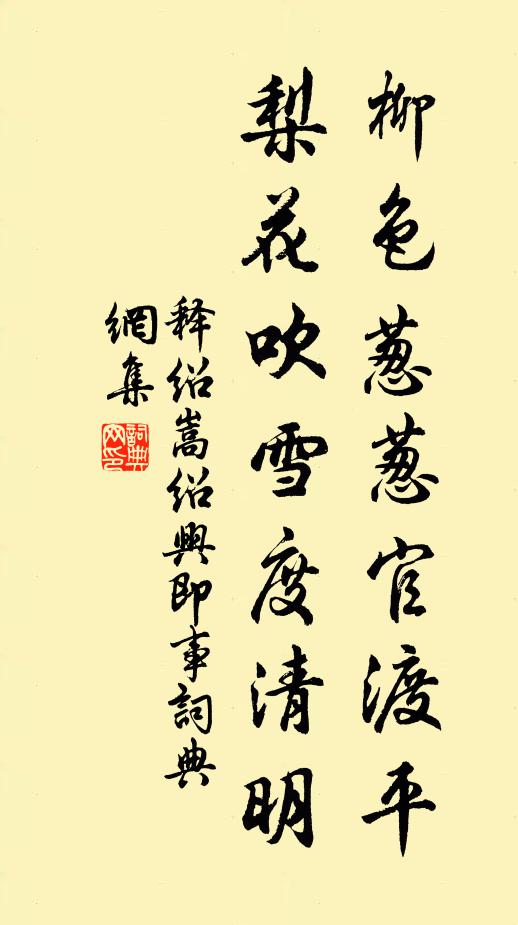 柳色葱葱官渡平
梨花吹雪度清明
释绍嵩绍興即事詞典
網集
詞典网印